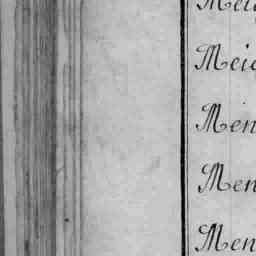 Meig
Meig
Men
Men
Men